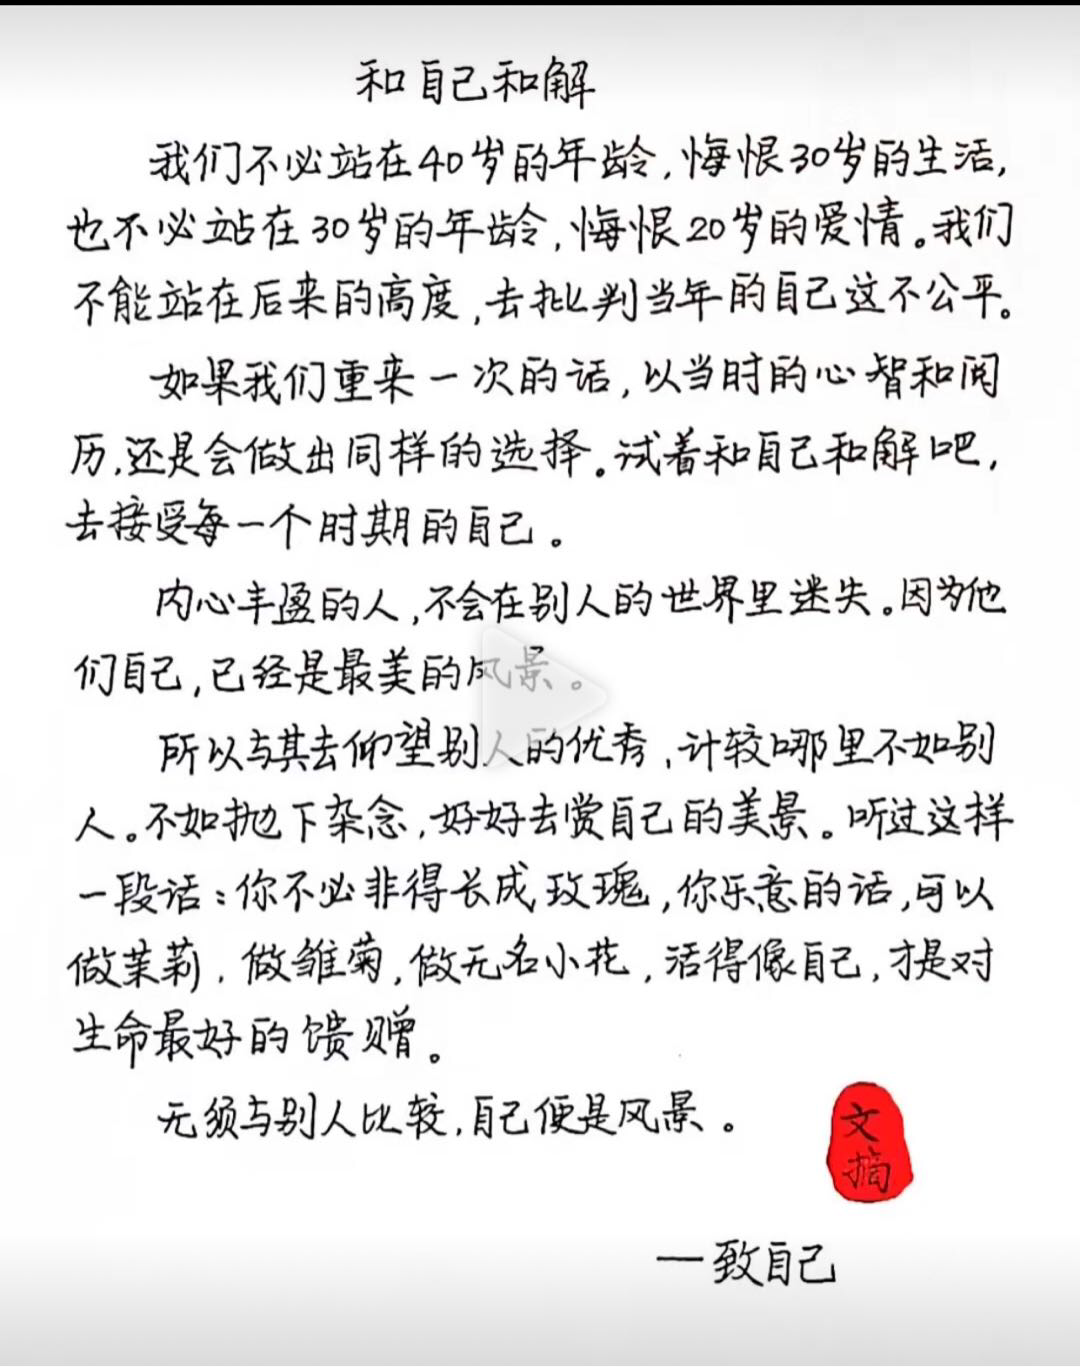 和自己和解
我们不必站在40岁的年龄,悔恨30岁的生活,
也不必站在30岁的年龄,悔恨20岁的爱情。我们
不能站在后来的高度,去批判当年的自己这不公平。
如果我们重来一次的话,以当时的心智和阅
历,还是会做出同样的选择。试着和自己和解吧,
去接受每一个时期的自己。
内心丰盈的人,不会在别人的世界里迷失。因为他
们自己,已经是最美的风景。
所以与其去仰望别人的优秀,计较哪里不如别
人。不如抛下杂念,好好去赏自己的美景。听过这样
一段话:你不必非得长成玫瑰,你乐意的话,可以
做茉莉,做雏菊,做无名小花,活得像自己,才是对
生命最好的馈赠。
无须与别人比较,自己便是风景。
文
摘
一致自己